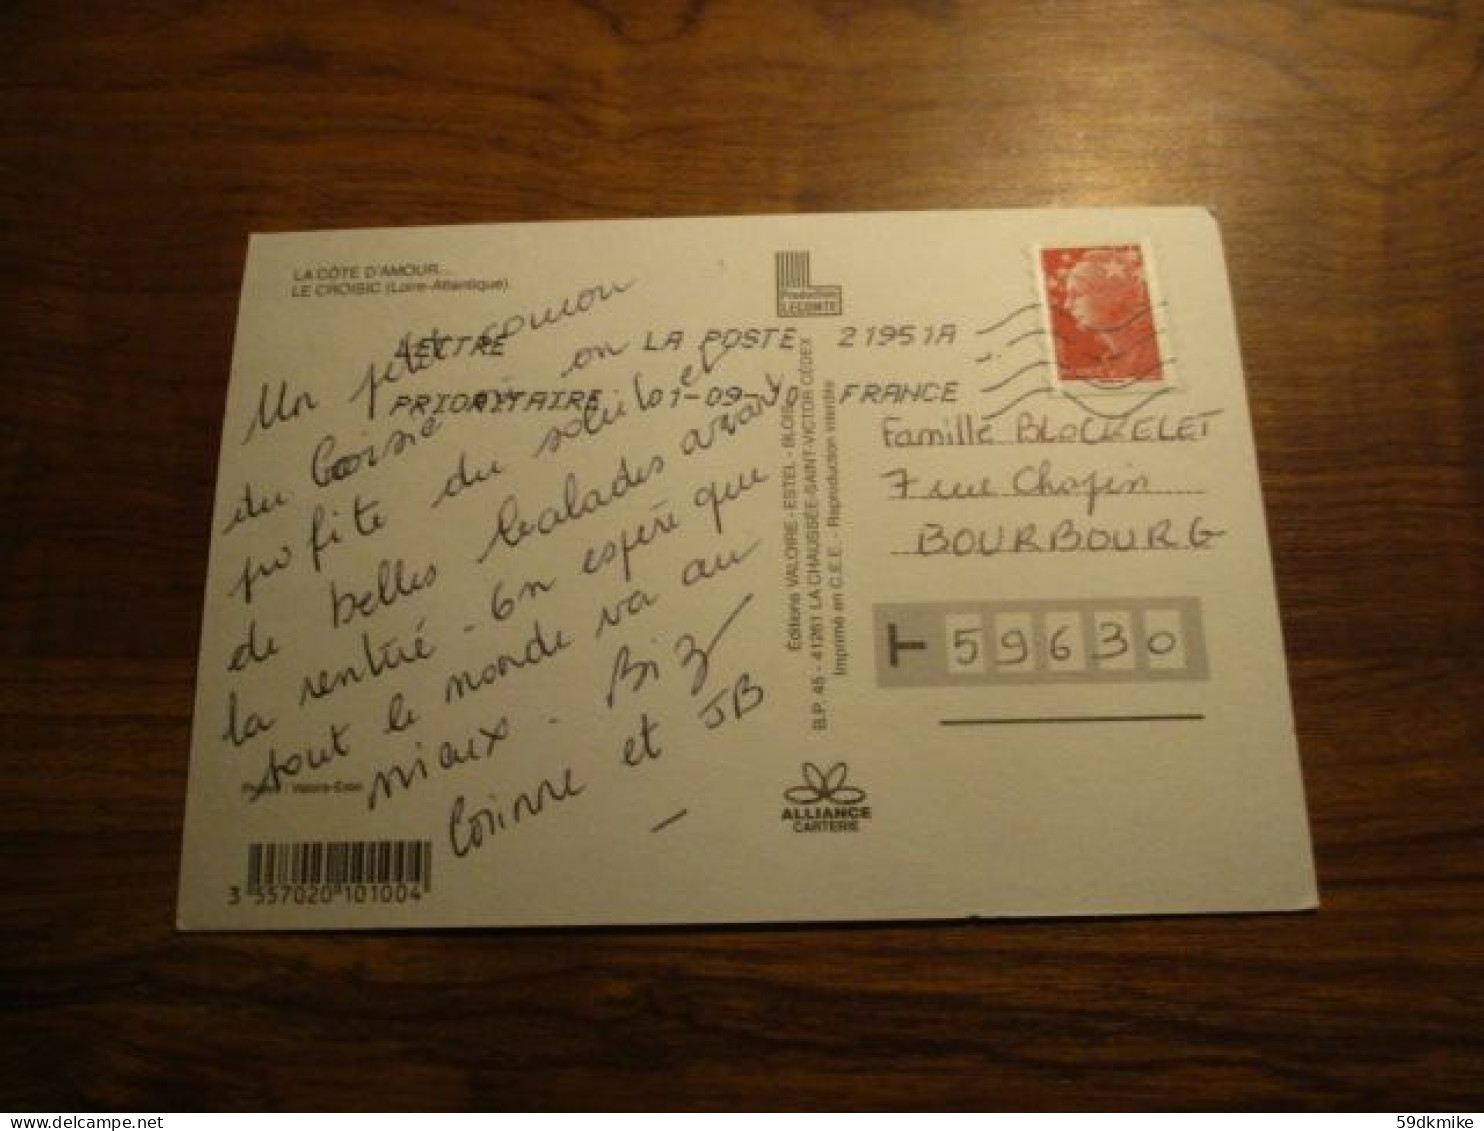 LA CÔTE D'AMOUR...
LE CROISIC (Loire-Atlantique)
Un petit coucou
du Croisic on
profite du soleil et
de belles balades avant
la rentrée - On espère que
tout le monde va au
mieux. Biz
Corinne et JB
Photo : Valoire-Estel
3 557020 101004
LETTRE LA POSTE 21951A
PRIORITAIRE 01-09-10 FRANCE
Production
LECONTE
Editions VALOIRE - ESTEL - BLOIS
B.P. 45 - 41261 LA CHAUSSÉE-SAINT-VICTOR CÉDEX
Imprimé en C.E.E. - Reproduction interdite
ALLIANCE
CARTERIE
Famille BLOCKELET
7 rue Chopin
BOURBOURG
T 59630
59dkmike